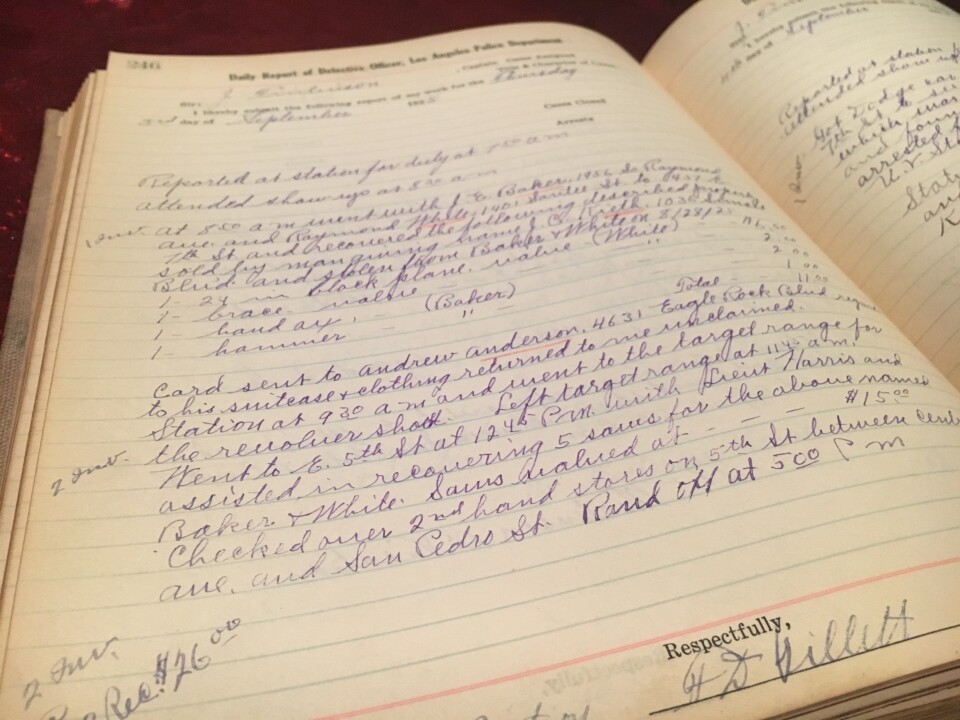 246
Daily Report of Detective Officer, Los Angeles Police Department
Sir:
I hereby submit the following report of my work for the Thursday
3rd day of September 192
Cases Closed
Arrests
Reported at station for duty at 7 50 a m
attended show up at 8 00 a m
1 Inv. at 8 50 a m went with J. E. Baker, 1956 So Raymond
ave. and Raymond White, 1401 Santee St. to
7th St. and recovered the following described property
sold by man giving name J. C.
Blvd. and stolen from Baker & White on 8/28/25
1- 24 in block plane. value (White)
1- brace value - " 2.00
1- hand ax, - (Baker) 2 00
1- hammer - " 1 00
Total - 11 00
Card sent to andrew anderson, 4631 Eagle Rock Blvd
to his suitcase & clothing returned to me unclaimed.
Station at 9 30 a m and went to the target range for
the revolver shoot. Left target range at 11 45 a m.
2 Inv. Went to E. 5th St at 12 45 P M. with Lieut Harris and
assisted in recovering 5 saws for the above named
Baker & White. Saws valued at - - - $15.00
Checked over 2nd hand stores on 5th St between
ave. and San Pedro St. Rand off at 5 00 P m
2 Inv.
Rec. $26 00
Respectfully,
H D Gillett
September
Reported at station
attended show up
Got Dodge car
7th St
which was
and
arrested